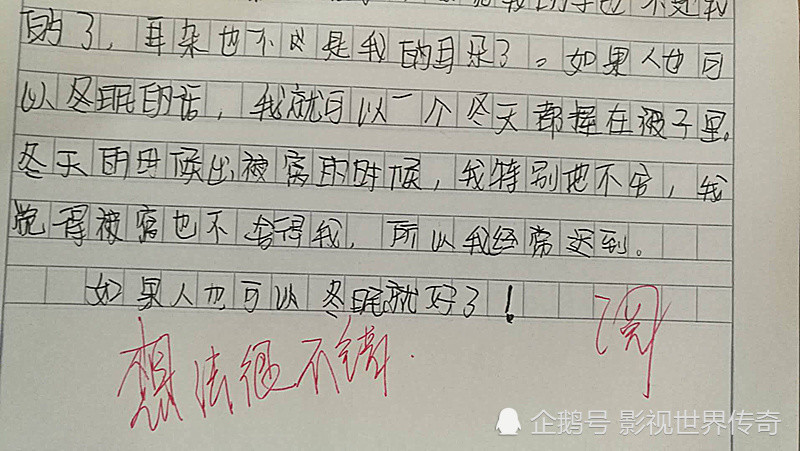 的了，耳朵也不是是我的耳朵了。如果人也可
以冬眠的话，我就可以一个冬天都握在被子里。
冬天的时候出被窝的时候，我特别地不舍，我
觉得被窝也不舍得我，所以我经常迟到。
如果人也可以冬眠就好了！
阅
想法很不错.
企鹅号 影视世界传奇